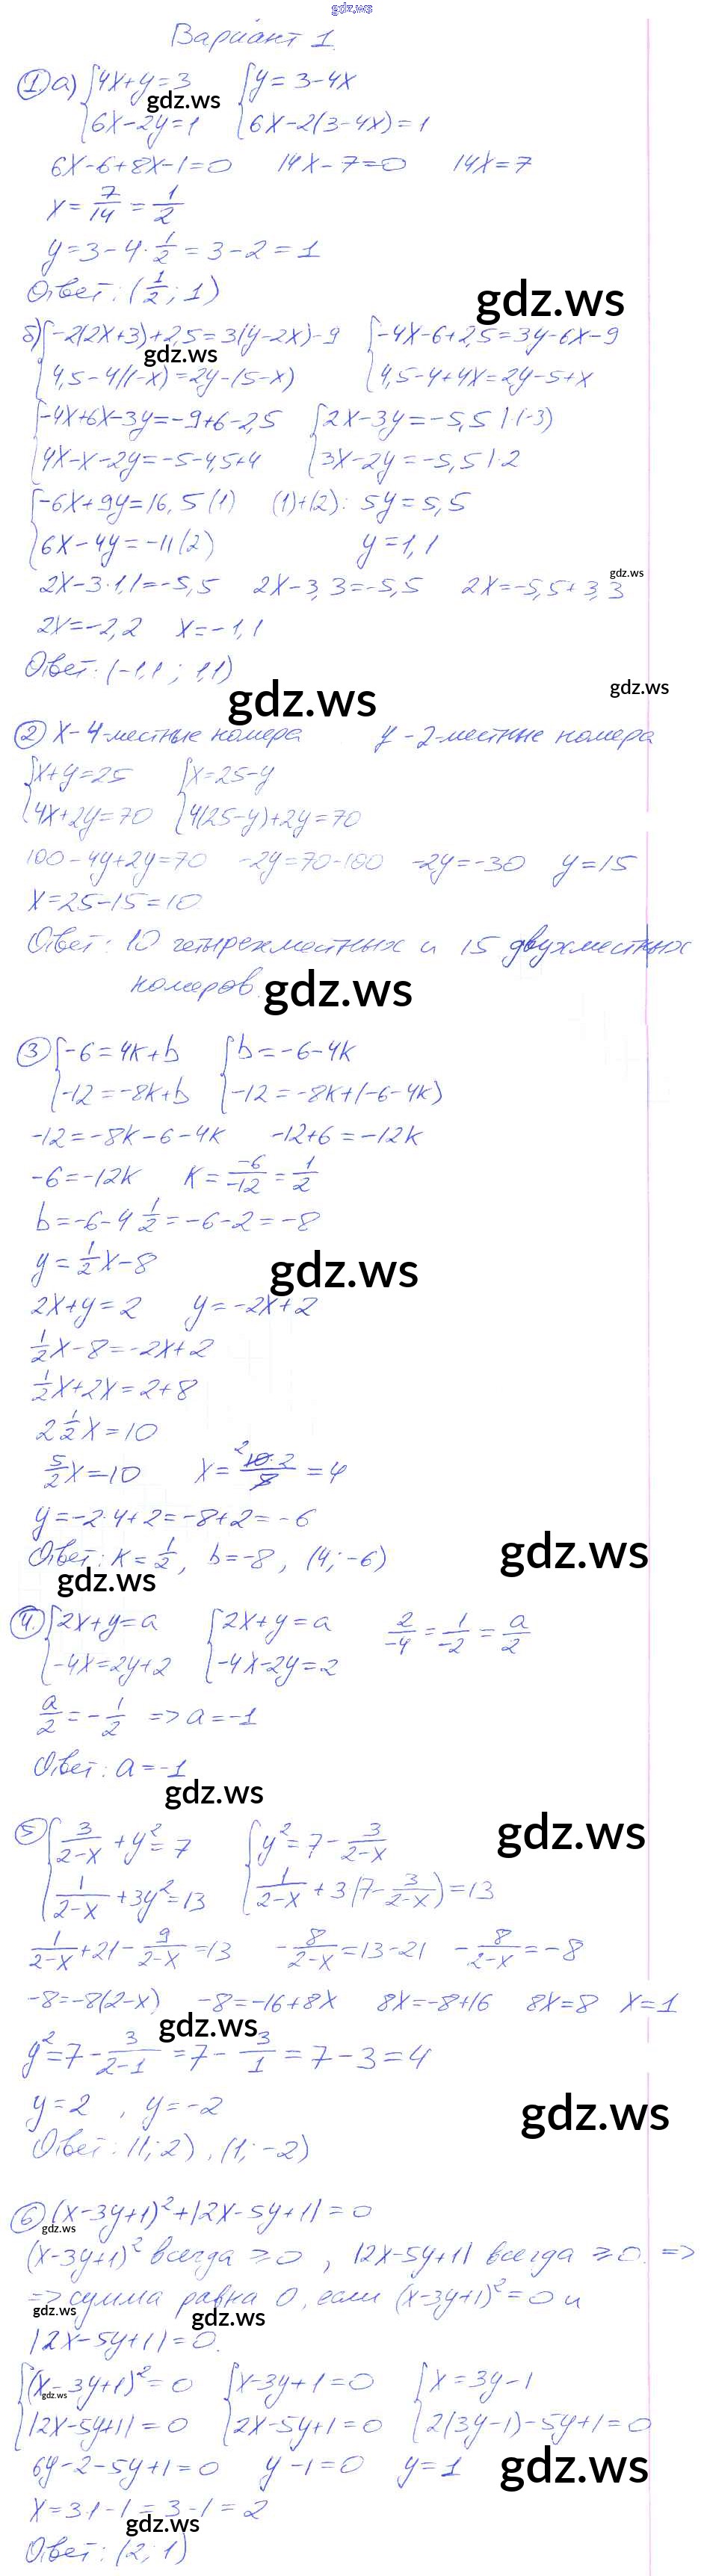 gdz.ws
Вариант 1.
① а) {4x+y=3 {y=3-4x
gdz.ws
{6x-2y=1 {6x-2(3-4x)=1
6x-6+8x-1=0 14x-7=0 14x=7
x=7/14=1/2
y=3-4·1/2=3-2=1
Ответ: (1/2; 1)
gdz.ws
б) {-2(2x+3)+2,5=3(y-2x)-9 {-4x-6+2,5=3y-6x-9
gdz.ws
{4,5-4(1-x)=2y-(5-x) {4,5-4+4x=2y-5+x
{-4x+6x-3y=-9+6-2,5 {2x-3y=-5,5 |·(-3)
{4x-x-2y=-5-4,5+4 {3x-2y=-5,5 |·2
{-6x+9y=16,5 (1) (1)+(2): 5y=5,5
{6x-4y=-11 (2) y=1,1
gdz.ws
2x-3·1,1=-5,5 2x-3,3=-5,5 2x=-5,5+3,3
2x=-2,2 x=-1,1
Ответ: (-1,1; 1,1)
gdz.ws
gdz.ws
② x-4-местные номера y-2-местные номера
{x+y=25 {x=25-y
{4x+2y=70 {4(25-y)+2y=70
100-4y+2y=70 -2y=70-100 -2y=-30 y=15
x=25-15=10
Ответ: 10 четырехместных и 15 двухместных
номеров.
gdz.ws
③ {-6=4k+b {b=-6-4k
{-12=-8k+b {-12=-8k+(-6-4k)
-12=-8k-6-4k -12+6=-12k
-6=-12k k=-6/-12=1/2
b=-6-4 1/2=-6-2=-8
y=1/2x-8
gdz.ws
2x+y=2 y=-2x+2
1/2x-8=-2x+2
1/2x+2x=2+8
2 1/2x=10
5/2x=10 x=10·2/5=4
y=-2·4+2=-8+2=-6
gdz.ws
Ответ: k=1/2, b=-8, (4; -6)
gdz.ws
④. {2x+y=a {2x+y=a 2/-4=1/-2=a/2
{-4x=2y+2 {-4x-2y=2
a/2=-1/2 => a=-1
Ответ: a=-1
gdz.ws
gdz.ws
⑤ {3/(2-x)+y²=7 {y²=7-3/(2-x)
{1/(2-x)+3y²=13 {1/(2-x)+3(7-3/(2-x))=13
1/(2-x)+21-9/(2-x)=13 -8/(2-x)=13-21 -8/(2-x)=-8
-8=-8(2-x) -8=-16+8x 8x=-8+16 8x=8 x=1
gdz.ws
y²=7-3/(2-1)=7-3/1=7-3=4
y=2, y=-2
gdz.ws
Ответ: (1; 2), (1; -2)
⑥ (x-3y+1)²+|2x-5y+1|=0
gdz.ws
(x-3y+1)² всегда ≥0, |2x-5y+1| всегда ≥0. =>
=> сумма равна 0, если (x-3y+1)²=0 и
gdz.ws
gdz.ws
|2x-5y+1|=0.
{(x-3y+1)²=0 {x-3y+1=0 {x=3y-1
gdz.ws
{|2x-5y+1|=0 {2x-5y+1=0 {2(3y-1)-5y+1=0
6y-2-5y+1=0 y-1=0 y=1
gdz.ws
x=3·1-1=3-1=2
gdz.ws
Ответ: (2; 1)